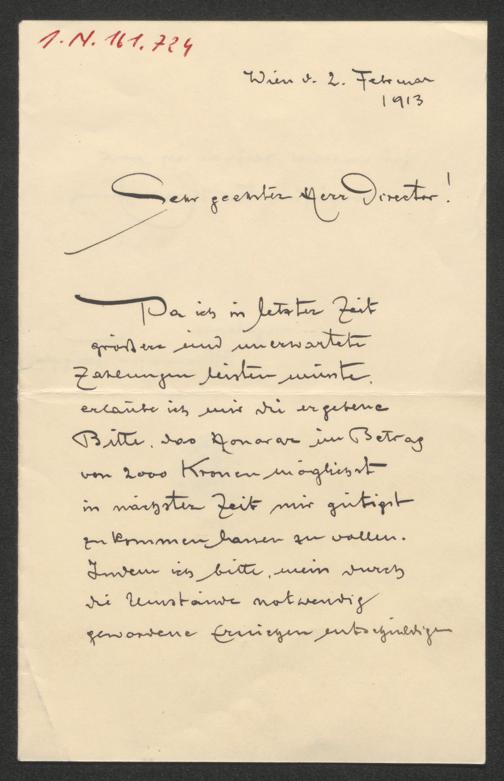 I. N. 161.724
Wien d. 2. Februar
1913
Sehr geehrter Herr Director!
Da ich in letzter Zeit
größere und unerwartete
Zahlungen leisten musste,
erlaube ich mir die ergebene
Bitte, das Honorar im Betrag
von 2000 Kronen möglichst
in nächster Zeit mir gütigst
zukommen lassen zu wollen.
Indem ich bitte, mein durch
die Umstände notwendig
gewordene Ersuchen entschuldigen